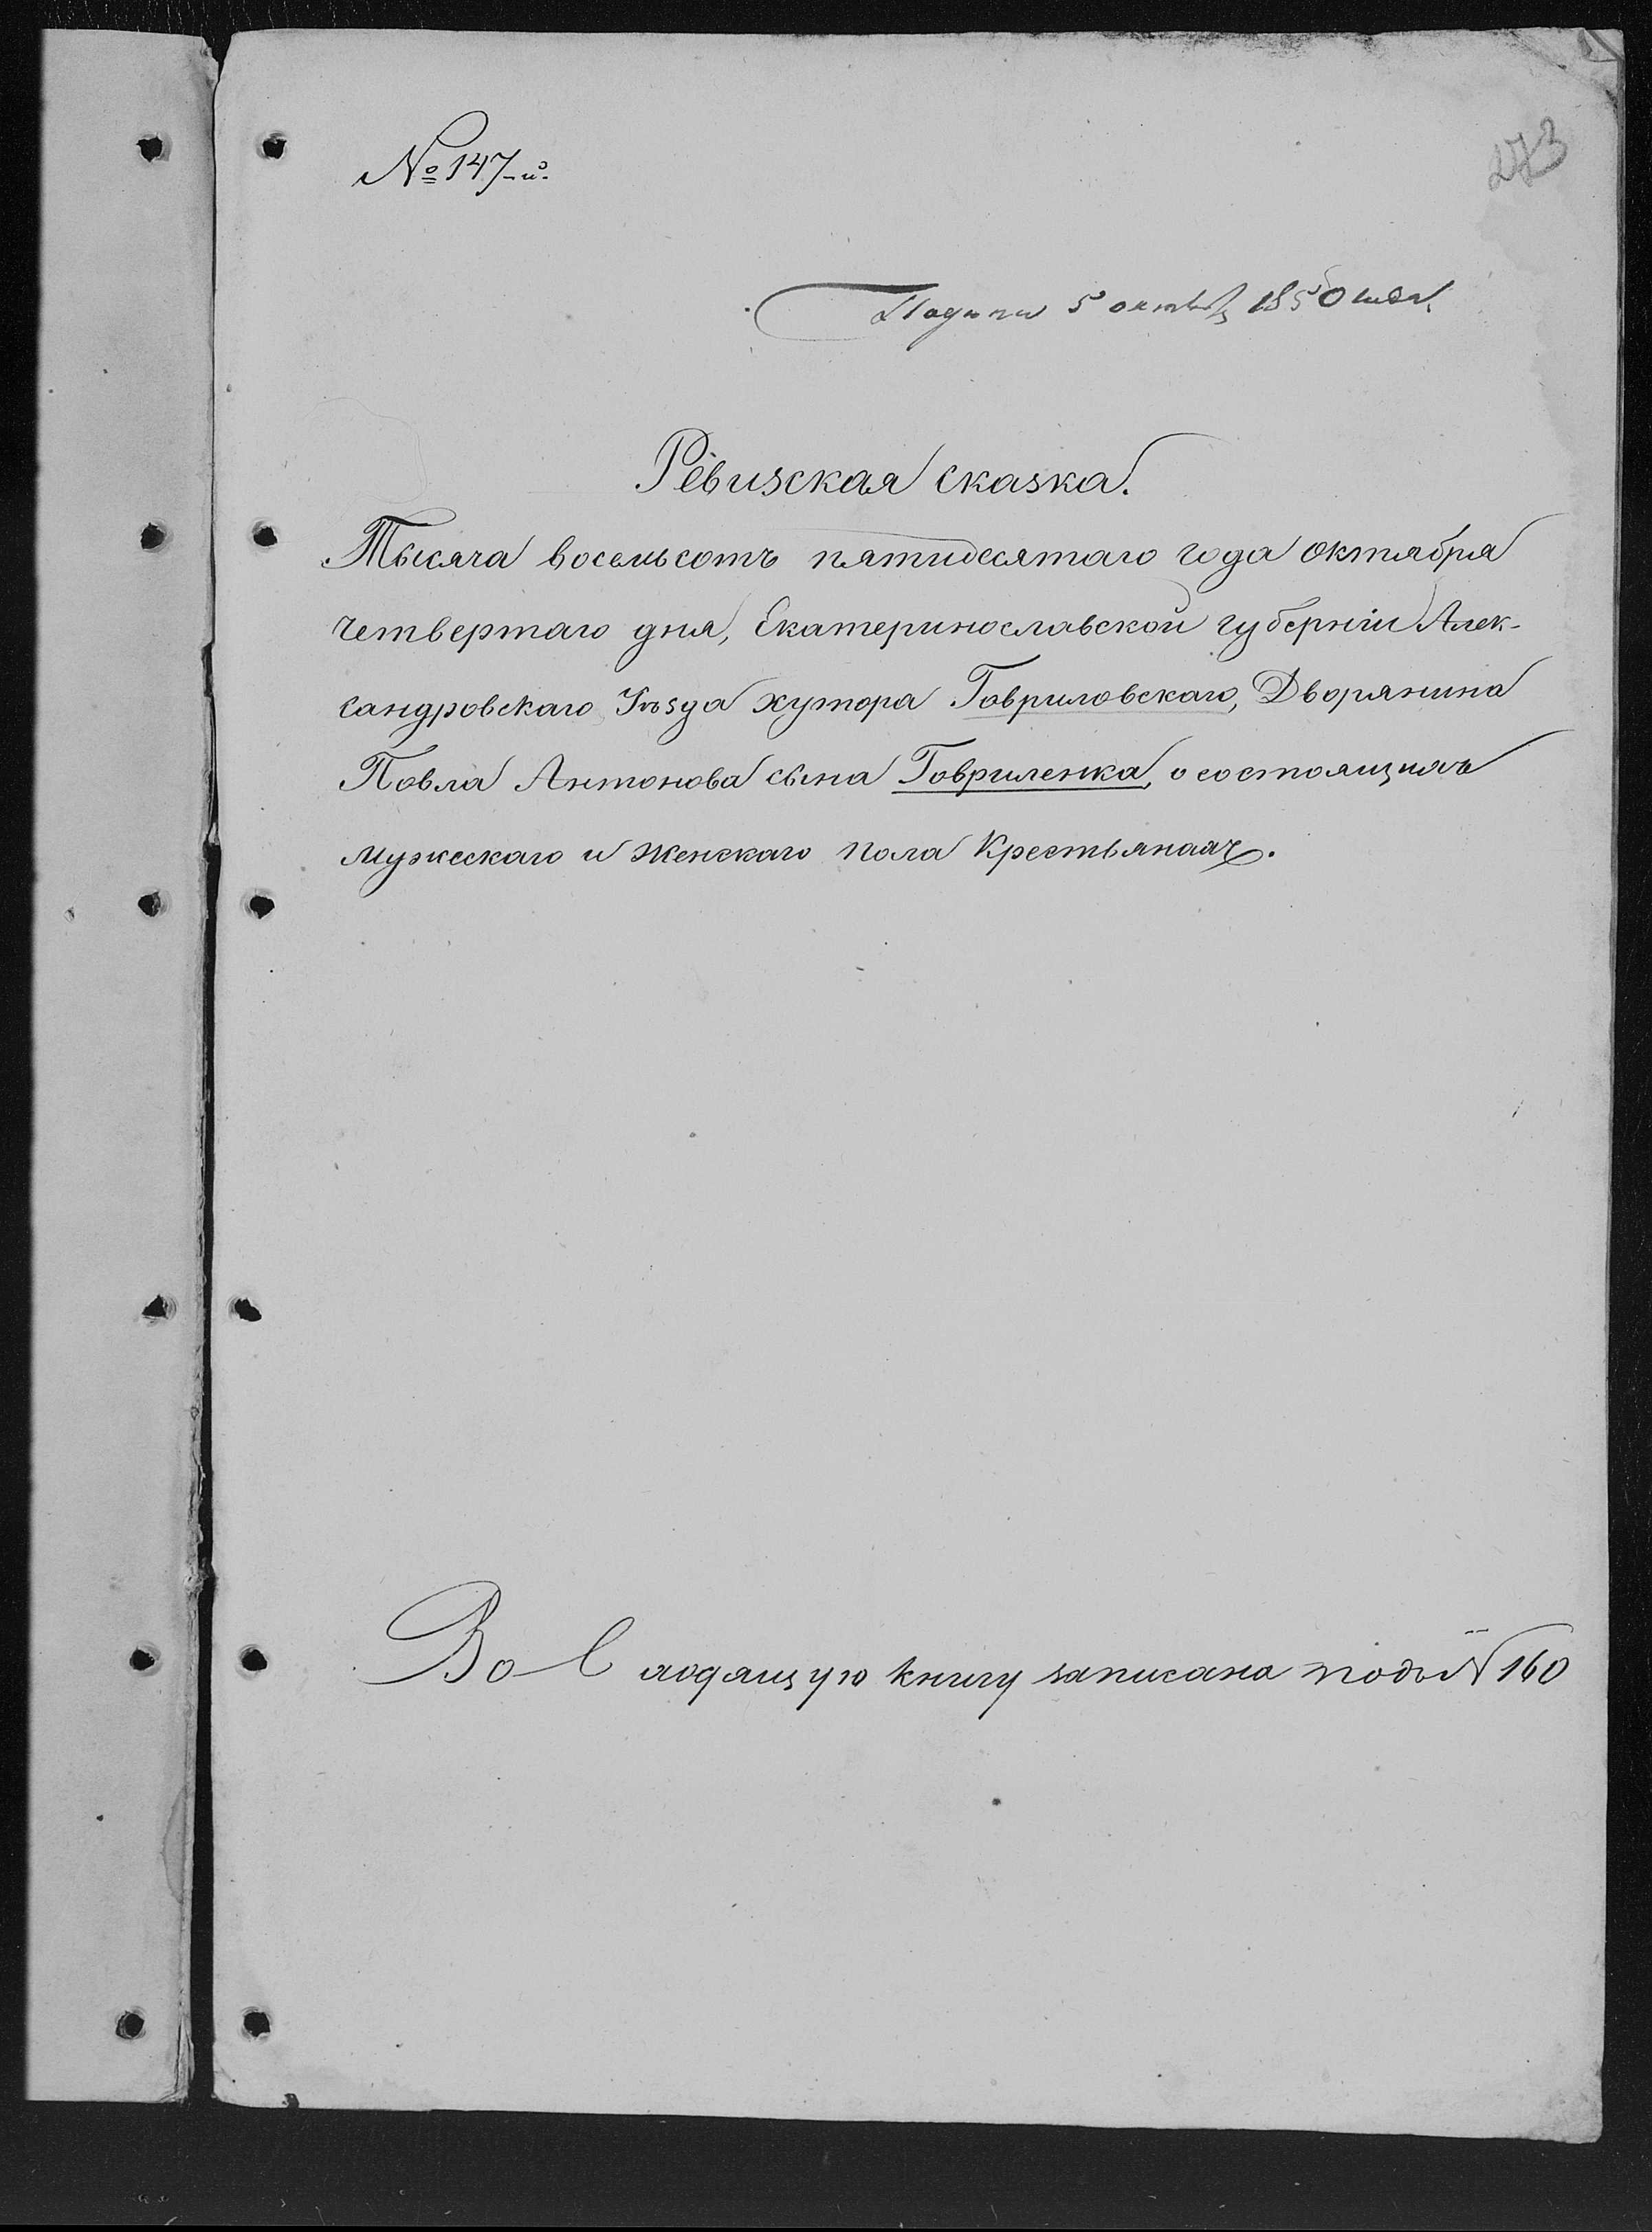 № 147-й.
273
Подана 5 октября 1850 года
Ревизская сказка.
Тысяча восемьсотъ пятидесятаго года октября
четвертаго дня, Екатеринославской губерніи Алек-
сандровскаго Уѣзда хутора Гавриловскаго, Дворянина
Павла Антонова сына Гавриленка, о состоящихъ
мужескаго и женскаго пола Крестьянахъ.
Во входящую книгу записана подъ № 160